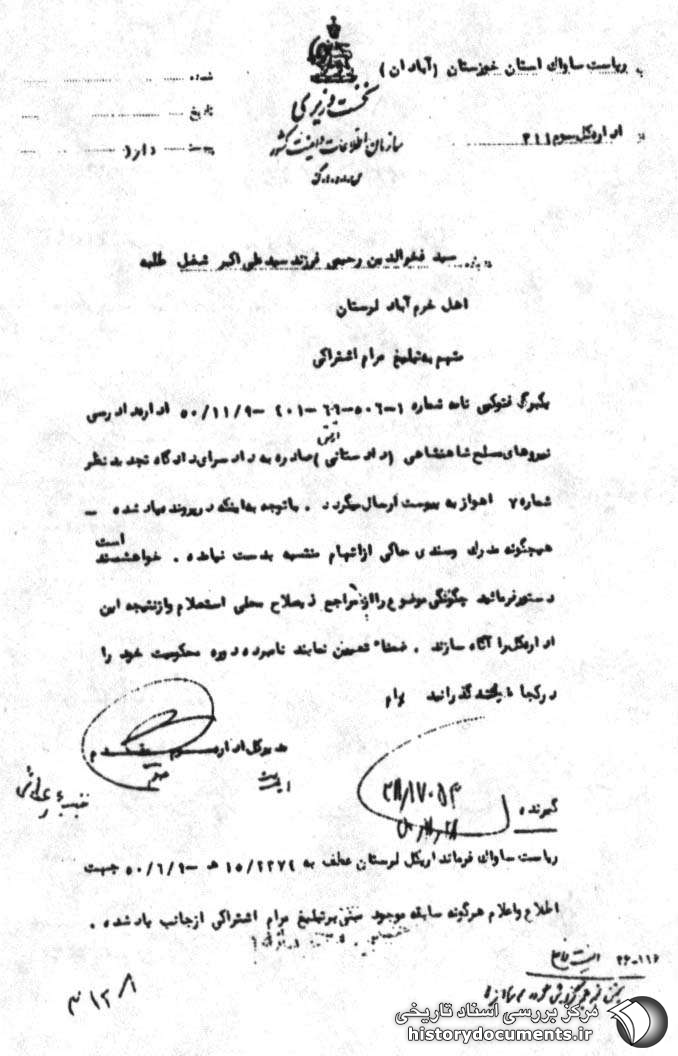 به ریاست ساواک استان خوزستان (آبادان)
نخست وزیری
سازمان اطلاعات و امنیت کشور
س.ا.و.ا.ک
از اداره کل سوم ۲۱۱
شماره
تاریخ
پیوست دارد
درباره سید فخرالدین رحیمی فرزند سید علی اکبر شغل طلبه
اهل خرم آباد لرستان
متهم به تبلیغ مرام اشتراکی
یکبرگ فتوکپی نامه شماره ۱-۵۰۶-۶۹-۴۰۱ -۵۰/۱۱/۹ اداره دادرسی
نیروهای مسلح شاهنشاهی (دادستانی) صادره به دادسرای دادگاه تجدید نظر
شماره ۷ اهواز به پیوست ارسال میگردد . باتوجه به اینکه در پرونده یاد شده -
هیچگونه مدرک وسندی حاکی ازاتهام منتسبه بدست نیامده است . خواهشمند
دستور فرمائید چگونگی موضوع را از مراجع ذیصلاح محلی استعلام واز نتیجه این
اداره کل را آگاه سازند . ضمنا" تعیین نمایند نامبرده دوره محکومیت خود را
در کجا گذرانید
مدیرکل اداره سوم مقدم
گیرنده
ریاست ساواک فرمانداریکل لرستان عطف به ۱۵/۲۲۷۴ هـ -۵۰/۶/۹ جهت
اطلاع واعلام هرگونه سابقه موجود مبنی بر تبلیغ مرام اشتراکی ازجانب یاد شده .
۲۶-۱۱۶
مرکز بررسی اسناد تاریخی
historydocuments.ir